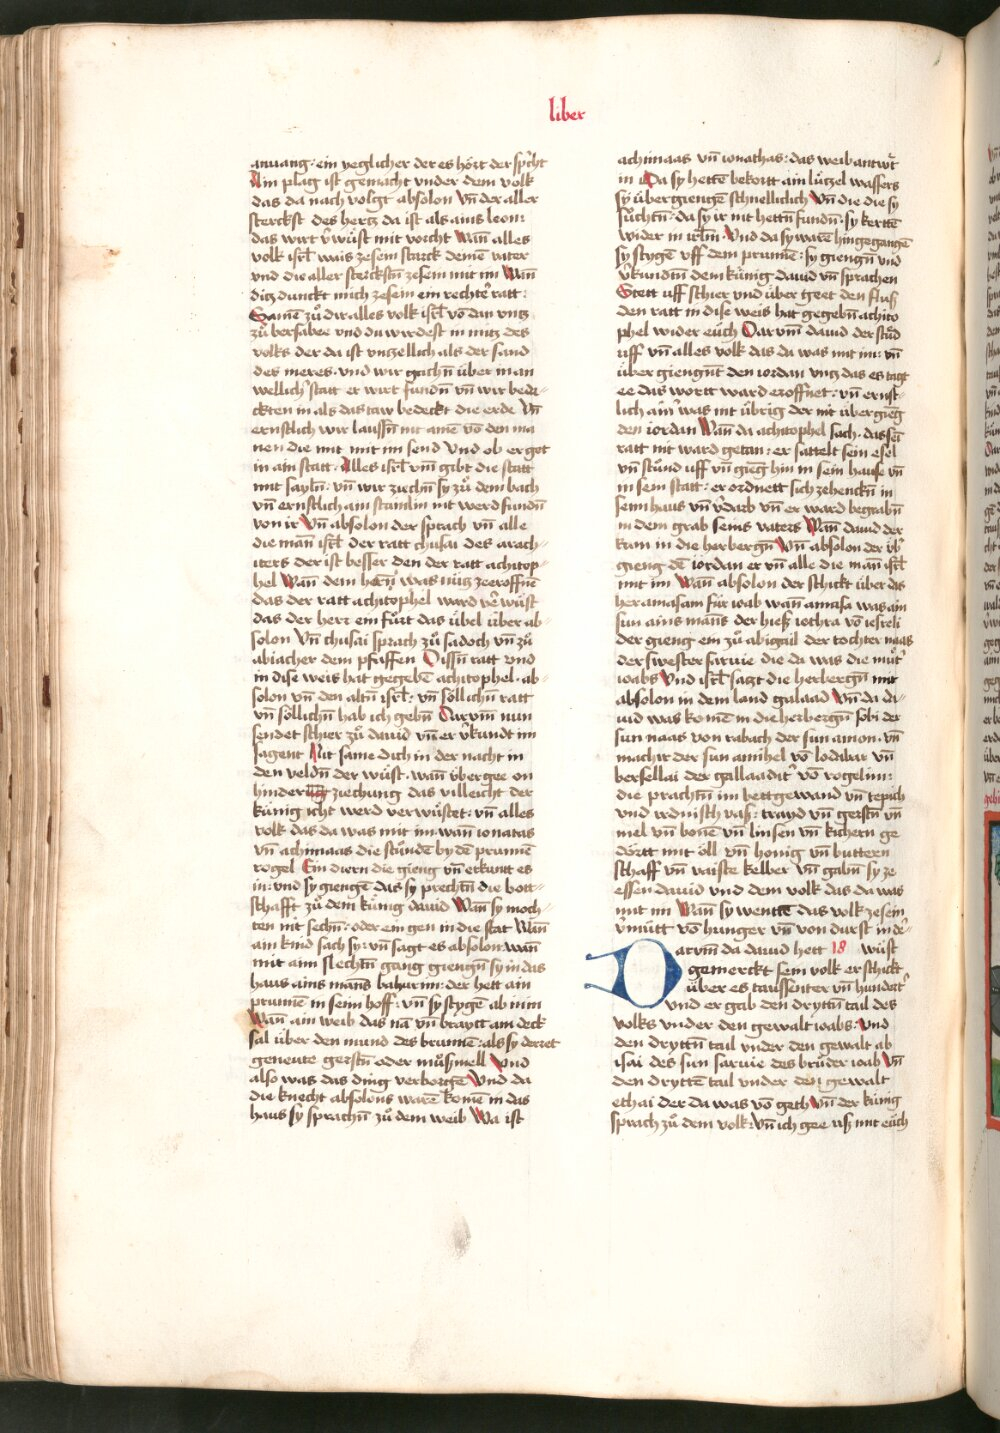 liber
anuang : ein yeglicher der es hört der sp͛cht
Ain plag ist gemacht vnder dem volk
das da nach volgt absolon Vn̄ der aller
sterckst des hertz da ist als ains leon :
das wirt v͛wüst mit vorcht Wan̄ alles
volk isrl̄ wais zesein starck deinē vater
vnd die aller sterckstn̄ zesein mit im Wan̄
ditz dunckt mich zesein ein rechter͛ ratt :
Samē zů dir alles volk isrl̄ vō dan vntz
zů bersabee vnd du wirdest in mitz des
volks der da ist vnzellich als der sand
des meres . vnd wir gachn̄ über in an
wellich͛ statt er wirt fundn̄ vn̄ wir bede-
ckten in als das taw bedeckt die erde Vn̄
ernstlich wir laussn̄ nit ainē vō den ma
nen die mit mit im send Vnd ob er got
in ain statt . Alles isrl̄ vm̄ gibt die statt
mit sayln̄ : vn̄ wir ziechn̄ sy zů dem bach
vn̄ ernstlich ain stainlin nit werd fundn̄
von ir Vn̄ absolon der sprach vn̄ alle
die man̄ isrl̄ der ratt chusai des arach-
iters der ist besser den der ratt achitop-
hel Wan̄ dem hern̄ was nütz zeeroffnē
das der ratt achitophel ward v͛wüst
das der herr ein fůrt das übel über ab-
solon Vn̄ chusai sprach zů sadoch vn̄ zů
abiacher dem pfaffen Dissn̄ ratt vnd
in dise weis hat gegebē achitophel . ab-
solon vn̄ den altn̄ isrl̄ : vn̄ söllichn̄ ratt
vn̄ söllichn̄ hab ich gebn̄ Darvm̄ nun
sendet schier zů dauid vn̄ er v͛kundt im
sagent Nit same dich in der nacht in
den veldn̄ der wüst . wan̄ übergee on
hinder ziechung das villeicht der
künig icht werd verwüstet : vn̄ alles
volk das da was mit im . wan̄ ionatas
vn̄ achimaas die stůndē by dē prunnē
rogel Ein diern die gieng vn̄ erkunt es
in : vnd sy giengē das sy prechtn̄ die bott-
schafft zů dem künig dauid Wan̄ sy moch-
ten nit sechn̄ : oder ein gen in die stat Wan̄
ain kind sach sy : vn̄ sagt es absolon wan̄
mit aim slechtn̄ gang giengn̄ sy in das
haus ains mans bahurim : der hett ain
prunnē in seim hoff : vn̄ sy stygē ab in in
Wan̄ ain weib das nā vn̄ braytt ain deck
sal über den mund des brunnē : als sy derret
geneute gerstn̄ oder můsmell Vnd
also was das ding verborgē Vnd da
die knecht absolons warē komē in das
haus sy sprachn̄ zů dem weib Wa ist
achimaas vn̄ ionathas : das weib antw͛t
in Da sy hettē bekortt ain lützel wassers
sy übergiengē schnelliclich Vn̄ die die sy
sůchtn̄ : da sy ir nit hettn̄ fundn̄ . sy kertē
wider in irl̄m̄ . Vnd da sy warē hingegangē
sy stygē vff dem prunnē : sy giengn̄ vnd
v͛kundtn̄ dem künig dauid vn̄ sprachen
Stett uff schier vnd über geet den flus
den ratt in dise weis hatt gegebn̄ achito
phel wider eüch Darvm̄ dauid der stůd
uff vn̄ alles volk das da was mit im : vn̄
über giengnt den iordan vntz das es tagt
ee das wortt ward eroffnet : vn̄ ernst-
lich ain͛ was nit übrig der nit übergieg
den iordan Wan̄ da achitophel sach . das sei
ratt nit ward getan : er sattelt sein esel
vn̄ stůnd uff vn̄ gieg hin in sein hause vn̄
in sein statt : er ordnett sich zehenckn̄ in
seim haus vn̄ v͛darb vn̄ er ward begrabn̄
in dem grab seins vaters Wan̄ dauid der
kam in die herbergn̄ Vn̄ absolon der üb͛
gieng dē iordan er vn̄ alle die man̄ isrl̄
mit im Wan̄ absolon der schickt über dis
her amasam für ioab wan̄ amasa was ain
sun ains mans der hies iethra vō iesreli
der gieng ein zů abigail der tochter naas
der swester saruie die da was die můt͛
ioabs Vnd isrl̄ satzt die herbergn̄ mit
absolon in dem land galaad Vn̄ da da-
uid was komē in die herbergn̄ sobi der
sun naas von rabach der sun amon . vn̄
machir der sun amihel vō lodibar vn̄
bersellai der gallaadit͛ vō rogelim :
die prachtn̄ im bettgewand vn̄ tepich
vnd irdnisch vas : trayd vn̄ gerstn̄ vn̄
mel vn̄ bonē vn̄ linsen vn̄ kichern ge
dörtt mit öll vn̄ honig vn̄ buttern
schaff vn̄ vaiste kelber vn̄ gabn̄ sy ze
essen dauid vnd dem volk das da was
mit im Wan̄ sy wentē das volk zesein
v͛mütt vō hunger vn̄ von durst in de͛-
Darvm̄ da dauid hett 18 wüst
gemerckt sein volk er schickt
über es taussenter vn̄ hundat͛
vnd er gab den dryttn̄ tail des
volks vnder den gewalt ioabs : Vnd
den dryttn̄ tail vnder den gewalt ab
isai des sun saruie des brůder ioab Vn̄
den dryttē tail vnder den gewalt
ethai der da was vō geth Vn̄ der künig
sprach zů dem volk : Vn̄ ich gee uß mit eüch